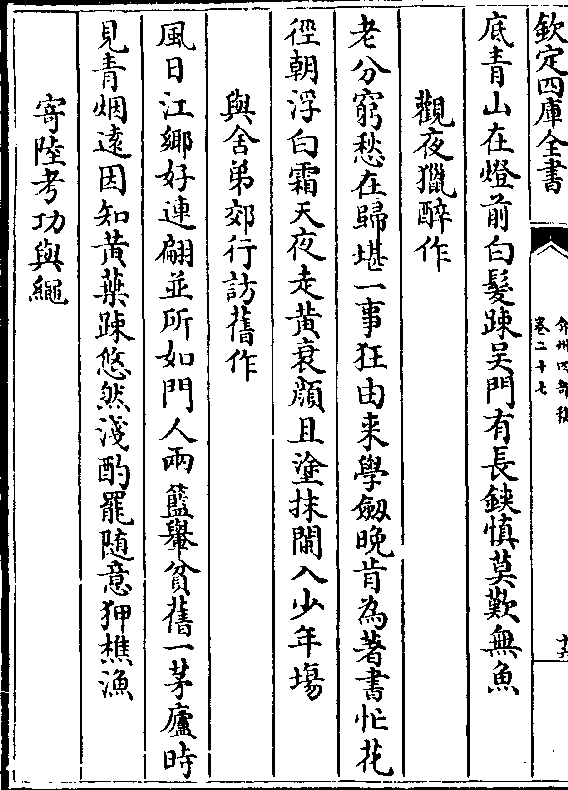 欽定四庫全書
弇州四部稿
卷二十七
底青山在燈前白髮踈吳門有長鋏慎莫歎無魚
觀夜獵醉作
老分窮愁在歸堪一事狂由来學劔晚肯為著書忙花
徑朝浮白霜天夜走黃衰顔且塗抹閙入少年塲
與舍弟郊行訪舊作
風日江鄉好連翩並所如門人兩籃轝貧舊一茅廬時
見青烟遠因知黃葉踈悠然淺酌罷随意狎樵漁
寄陸考功與繩